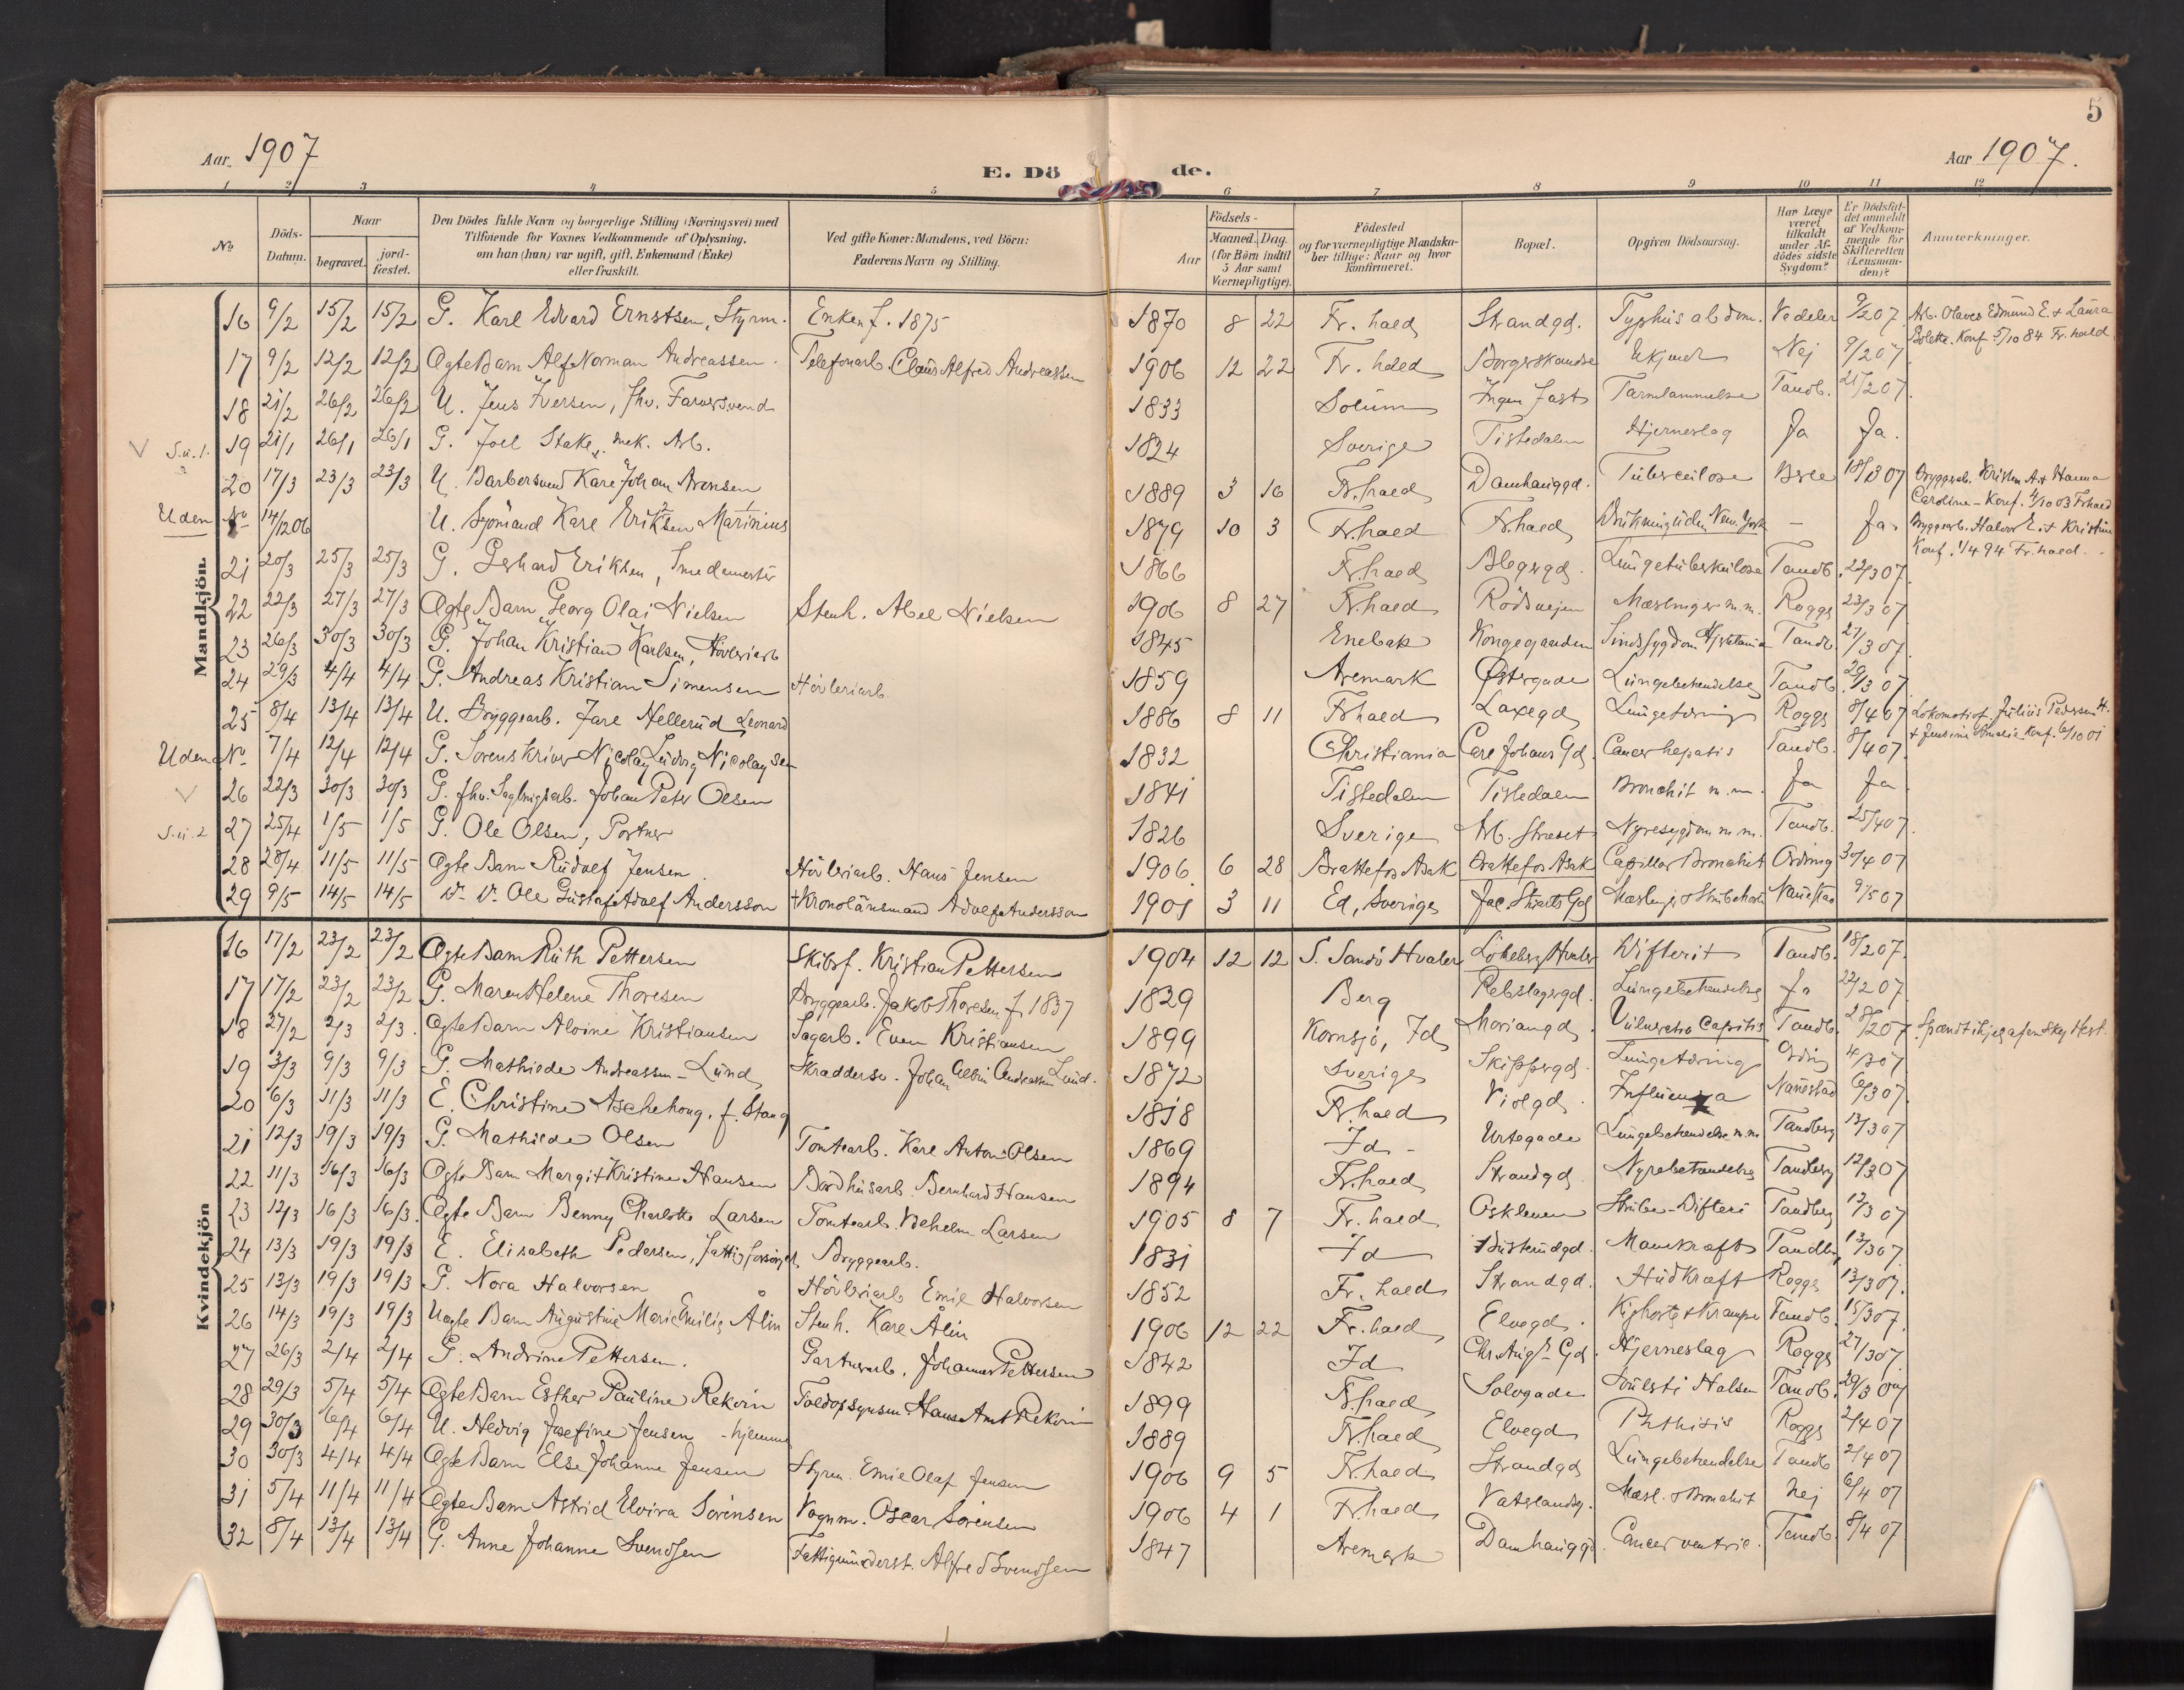 5
Aar 1907
E. Dö de.
Aar 1907.
1 2 3 4 5 6 7 8 9 10 11 12
No Döds-Datum. Naar begravet. jord-fæstet. Den Dödes fulde Navn og borgerlige Stilling (Næringsvei) med Tilföiende for Voxnes Vedkommende af Oplysning, om han (hun) var ugift, gift, Enkemand (Enke) eller fraskilt. Ved gifte Koner: Mandens, ved Börn: Faderens Navn og Stilling. Födsels- Aar Maaned. Dag. (for Börn indtil 5 Aar samt Værnepligtige). Födested og for værnepligtige Mandskaber tillige: Naar og hvor konfirmeret. Bopæl. Opgiven Dödsaarsag. Har Læge været tilkaldt under Afdödes sidste Sygdom? Er Dödsfaldet anmeldt af Vedkommende for Skifteretten (Lensmanden)? Anmærkninger.
Mandkjön.
16 9/2 15/2 15/2 G. Karl Edvard Ernstsen, Styrm. Enken f. 1875 1870 8 22 Fr. hald Strandgd. Typhus abdom. Vedeler 9/2 07 Arb. Olaves Edmund E. & Laura Bolette. Konf. 5/10 84 Fr. hald
17 9/2 12/2 12/2 Ægte Barn Alf Norman Andreassen. Telefonarb. Claus Alfred Andreassen 1906 12 22 Fr. hald Borgerskandse Ukjendt Nej 9/2 07
18 21/2 26/2 26/2 U. Jens Iversen, fhv. Farversvend 1833 Solum Ingen fast Tarmlammelse Tandb. 21/2 07
S. u. 1. 19 21/1 26/1 26/1 G. Joel Stake, mek. Arb. 1824 Sverige Tistedalen Hjerneslag Ja Ja.
20 17/3 23/3 23/3 U. Barbersvend Karl Johan Arensen 1889 3 16 Fr. hald Damhauggd. Tuberculose 18/3 07 Bryggearb. Kristen A. & Hanna Caroline - Konf. 4/10 03 Frhald
Uden No 14/12 06 U. Sjömand Karl Eriksen Marinius 1879 10 3 Fr. hald Fr. hald Drukning uden New York - Ja. Bryggearb. Halvor E. & Kristine Konf. 1/4 94 Fr. hald.
21 20/3 25/3 25/3 G. Gerhard Eriksen, Smedemester 1866 Fr. hald Blegergd. Lungetuberkulose Tandb. 22/3 07.
22 22/3 27/3 27/3 Ægte Barn Georg Olai Nielsen Stenh. Abel Nielsen 1906 8 27 Fr. hald Rödsvejen Mæslinger m.m. Rogge 23/3 07
23 26/3 30/3 30/3 G. Johan Kristian Karlsen, Hövleriarb 1845 Enebak Kongegaarden Sindssygdom Tandb. 27/3 07.
24 29/3 4/4 4/4 G. Andreas Kristian Simensen Hövleriarb. 1859 Aremark Østergade Lungebetændelse Tandb. 29/3 07
25 8/4 13/4 13/4 U. Bryggearb. Jarl Hellerud Leonard 1886 8 11 Frhald Laxegd Lungetæring Rogge 8/4 07 Lokomotivf. Julius Pedersen H. & Jensine Amalie Konf. 6/10 01
Uden No 7/4 12/4 12/4 G. Sorenskriver Nicolay Ludvig Nicolaysen 1832 Christiania Carl Johans Gd. Cancer hepatis Tandb. 8/4 07.
26 22/3 30/3 30/3 G. fhv. Sagbrugsarb. Johan Peter Olsen 1841 Tistedalen Tistedalen Bronchit m.m. Ja Ja
S. u. 2 27 25/4 1/5 1/5 G. Ole Olsen, Portner 1826 Sverige Arb. Strædet Nyresygdom m.m. Tandb. 25/4 07.
28 28/4 11/5 11/5 Ægte Barn Rudolf Jensen. Hövleriarb. Hans Jensen 1906. 6 28 Brattefos Asak Brattefos Asak Capillær Bronchit Ording 30/4 07
29 9/5 14/5 14/5 Do Do Ole Gustaf Adolf Andersson + Kronolänsmand Adolf Andersson 1901 3 11 Ed, Sverige Jac. Stuarts Gd Nauestad 9/5 07
Kvindekjön
16 17/2 23/2 23/2 Ægte Barn Ruth Pettersen Skibsf. Kristian Pettersen 1904 12 12 S. Sandö Hvaler Lökeberg Hvaler Difterit Tandb. 18/2 07.
17 17/2 23/2 23/2 G. Maren Helene Thoresen Bryggearb. Jakob Thoresen f. 1837 1829 Berg Rebslagergd. Lungebetændelse Ja 22/2 07.
18 27/2 2/3 2/3. Ægte Barn Alvine Kristiansen Sagarb. Even Kristiansen 1899 Kornsjö, Id Moriangd. Capitis Tandb. 28/2 07. Spændt ihjel af en sky Hest.
19 3/3 9/3 9/3 G. Mathilde Andreassen-Lund Skræddersv. Johan Albin Andreassen Lund. 1872 Sverige Skippergd. Lungetæring Ording 4/3 07
20 6/3 11/3 11/3 E. Christine Aschehoug. f. Stang 1818 Fr. hald Violgd. Influenza Nauestad 6/3 07.
21 12/3 19/3 19/3 G. Mathilde Olsen Tomtearb. Karl Anton Olsen 1869 Id - Urtegade Lungebetændelse m.m Tandberg 13/3 07
22 11/3 16/3 16/3 Ægte Barn Margit Kristine Hansen Bordhusarb. Bernhard Hansen 1894 Fr. hald Strandgd. Nyrebetændelse Tandberg 12/3 07
23 12/3 16/3 16/3. Ægte Barn Benny Charlotte Larsen Tomtearb. Vilhelm Larsen 1905 8 7 Fr. hald Oskleven Strube-Difteri Tandberg 12/3 07
24 13/3 19/3 19/3 E. Elisabeth Pedersen, Fattigforsörget Bryggearb. 1831 Id Busterudgd. Mavekræft Tandb. 13/3 07.
25 13/3 19/3 19/3 G. Nora Halvorsen Hövleriarb. Emil Halvorsen 1852 Fr. hald Strandgd. Hudkræft Rogge 13/3 07.
26 14/3 19/3 19/3 Uægte Barn Augustine Marie Emilie Ålin Stenh. Karl Ålin 1906 12 22 Fr. hald Elvegd. Kighoste & Krampe Tandb. 15/3 07.
27 26/3 2/4 2/4 G. Andrine Pettersen. Gartnerarb. Johannes Pettersen 1842 Id Chr. Aug's Gd. Hjerneslag Rogge 27/3 07.
28 29/3 5/4 5/4 Ægte Barn Esther Pauline Rekvin Toldopsynsm. Hans Ant. Rekvin 1899 Fr. hald Solvgade Halsen Tandb. 29/3 07
29 30/3 6/4 6/4 U. Hedvig Josefine Jensen - hjemme 1889 Fr. hald Elvegd Phthisis Rogge 2/4 07
30 30/3 4/4 4/4 Ægte Barn Else Johanne Jensen Styrm. Emil Olaf Jensen 1906 9 5 Fr. hald Strandgd Lungebetændelse Tandb 2/4 07
31 5/4 11/4 11/4 Ægte Barn Astrid Elvira Sörensen Vognm. Oscar Sörensen 1906 4 1 Fr. hald Vaterlandsg. Mæsl. & Bronchit Nej 6/4 07
32 8/4 13/4 13/4 G. Anne Johanne Svendsen Fattigunderst. Alfred Svendsen 1847 Aremark Damhauggd. Cancer ventric. Tandb. 8/4 07